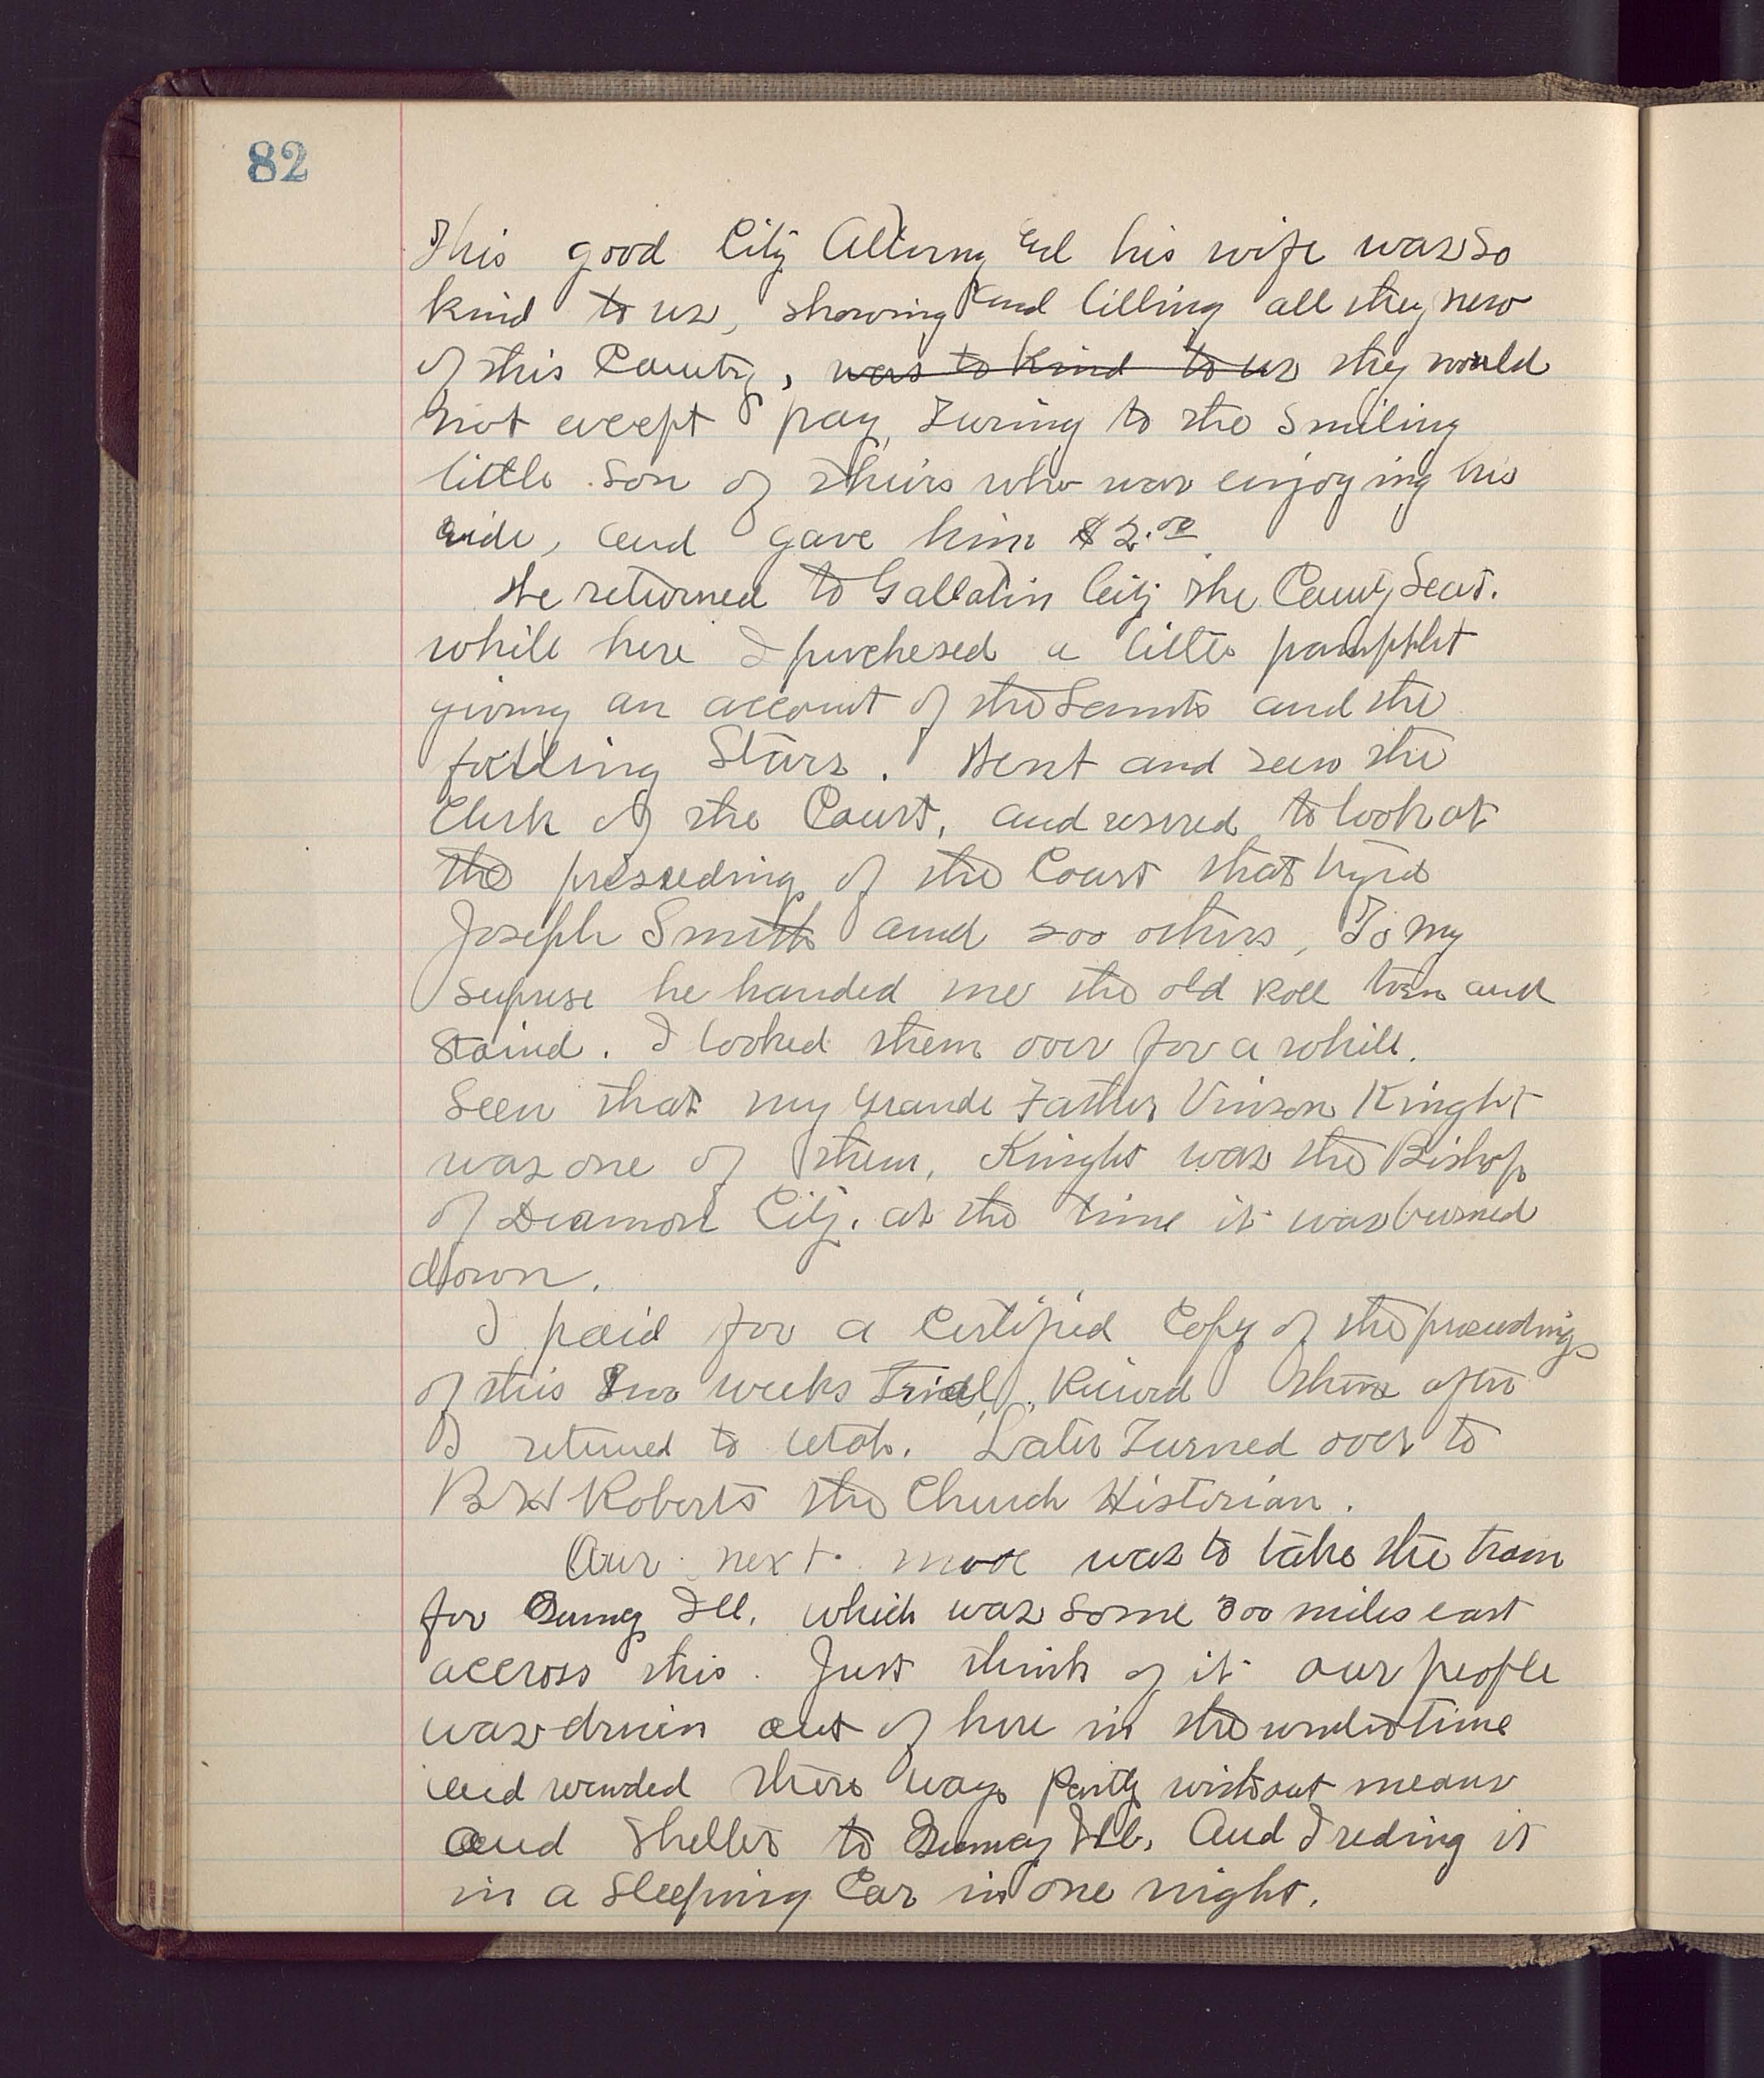 82
This good City Atterny and his wife was so
kind to us, showing and tilling all they new
of this County, was to kind to us they would
not except pay, Turing to the smiling
little son of theirs who was enjoying his
ride, and gave him $2.00
We returned to Gallatin City the County Seat.
while here I purchesed a little pamphlet
giving an account of the Saints and the
falling Stars. Went and seen the
Clerk of the Court, and to look at
the proseedings of the Court that tryed
Joseph Smith and 200 others, To my
suprise he handed me the old Roll torn and
Staind. I looked them over for a while.
Seen that my Grande Father Vinson Kinght
was one of them, Knight was the Bishop
of Diamon City. at the time it was burned
down.
I paid for a Certified Copy of the proceedings
of this Two weeks Trial, Recived them after
I returned to Utah. Later Turned over to
B H Roberts the Church Historian.
Our next move was to take the train
for Quincy Ill. which was some 300 miles east
accross this. Just think of it our people
was drivin out of here in the winter time
and winded there way partly without means
and Shelter to Quincy Ill. And I reding it
in a Sleeping Car in one night.